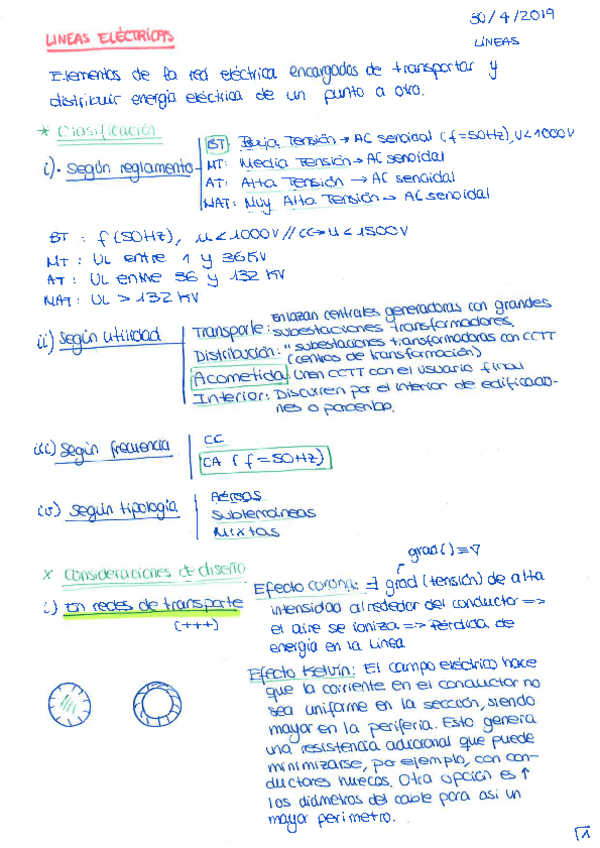 30/4/2019
LÍNEAS ELÉCTRICAS
LÍNEAS
Elementos de la red eléctrica encargados de transportar y
distribuir energía eléctrica de un punto a otro.
* Clasificación
i). Según reglamento
BT: Baja Tensión → AC senoidal (f=50Hz), U<1000V
MT: Media Tensión → AC senoidal
AT: Alta Tensión → AC senoidal
MAT: Muy Alta Tensión → AC senoidal
BT : f (50Hz), u<1000V // CC → U<1500V
MT : UL entre 1 y 36KV
AT : UL entre 36 y 132 KV
MAT: UL > 132 KV
ii) Según utilidad
Transporte: enlazan centrales generadoras con grandes
subestaciones transformadores.
Distribución: " subestaciones transformadoras con CCTT
(centros de transformación)
Acometida: Unen CCTT con el usuario final
Interior: Discurren por el interior de edificacio-
nes o parcelas.
iii) Según frecuencia
CC
CA (f=50Hz)
iv) Según tipología
Aéreas
Subterráneas
Mixtas
grad( ) ≡ ∇
x Consideraciones de diseño
i) En redes de transporte
(+++)
Efecto corona: ∃ grad (tensión) de alta
intensidad alrededor del conductor =>
el aire se ioniza => Pérdida de
energía en la línea
Efecto Kelvin: El campo eléctrico hace
que la corriente en el conductor no
sea uniforme en la sección, siendo
mayor en la periferia. Esto genera
una resistencia adicional que puede
minimizarse, por ejemplo, con con-
ductores huecos. Otra opción es ↑
los diámetros del cable para así un
mayor perímetro.
1